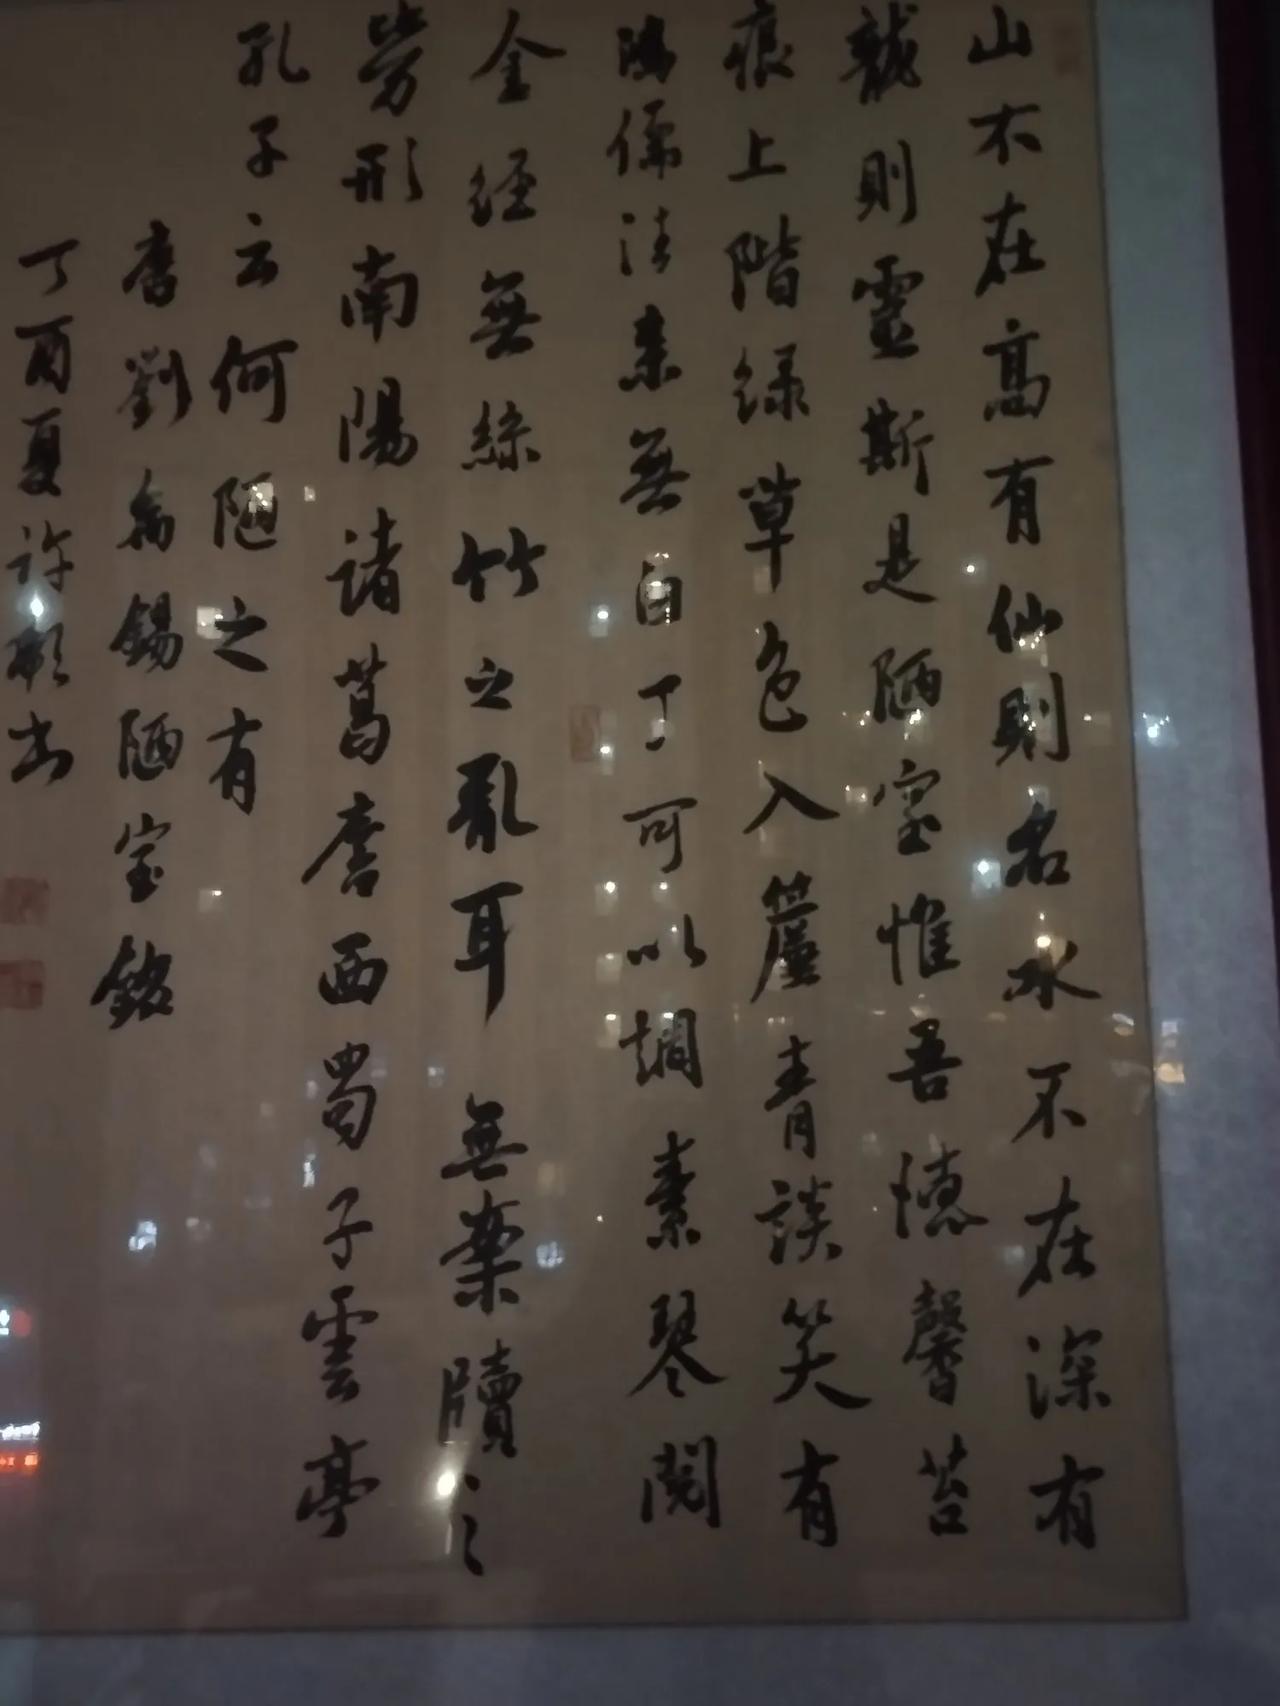 山不在高有仙則名水不在深有
龍則靈斯是陋室惟吾德馨苔
痕上階綠草色入簾青談笑有
鴻儒往来無白丁可以調素琴閱
金經無絲竹之亂耳無案牘之
勞形南陽諸葛廬西蜀子雲亭
孔子云何陋之有
唐劉禹錫陋室銘
丁酉夏許书